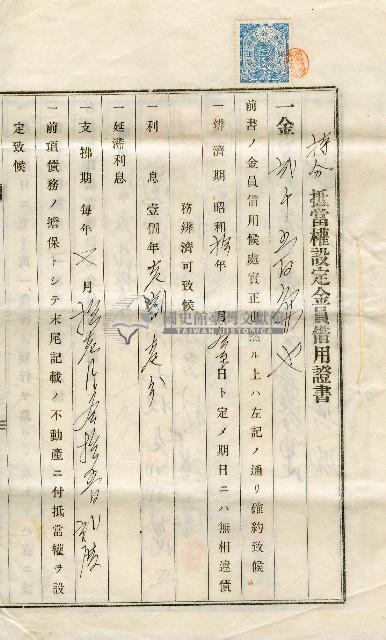 持分 抵當權設定金員借用證書
一金 貳千五百圓也
前書ノ金員借用候處實正 無ル上ハ左記ノ通リ確約致候
一辨濟期 昭和拾年 月 日ト定メ期日ニハ無相違債
務辨濟可致候
一利息 壹個年壹割壹分
一延滯利息
一支拂期每年 月
一前項債務ノ擔保トシテ末尾記載ノ不動產ニ付抵當權ヲ設
定致候
國史館臺灣文獻館
TAIWAN HISTORICA